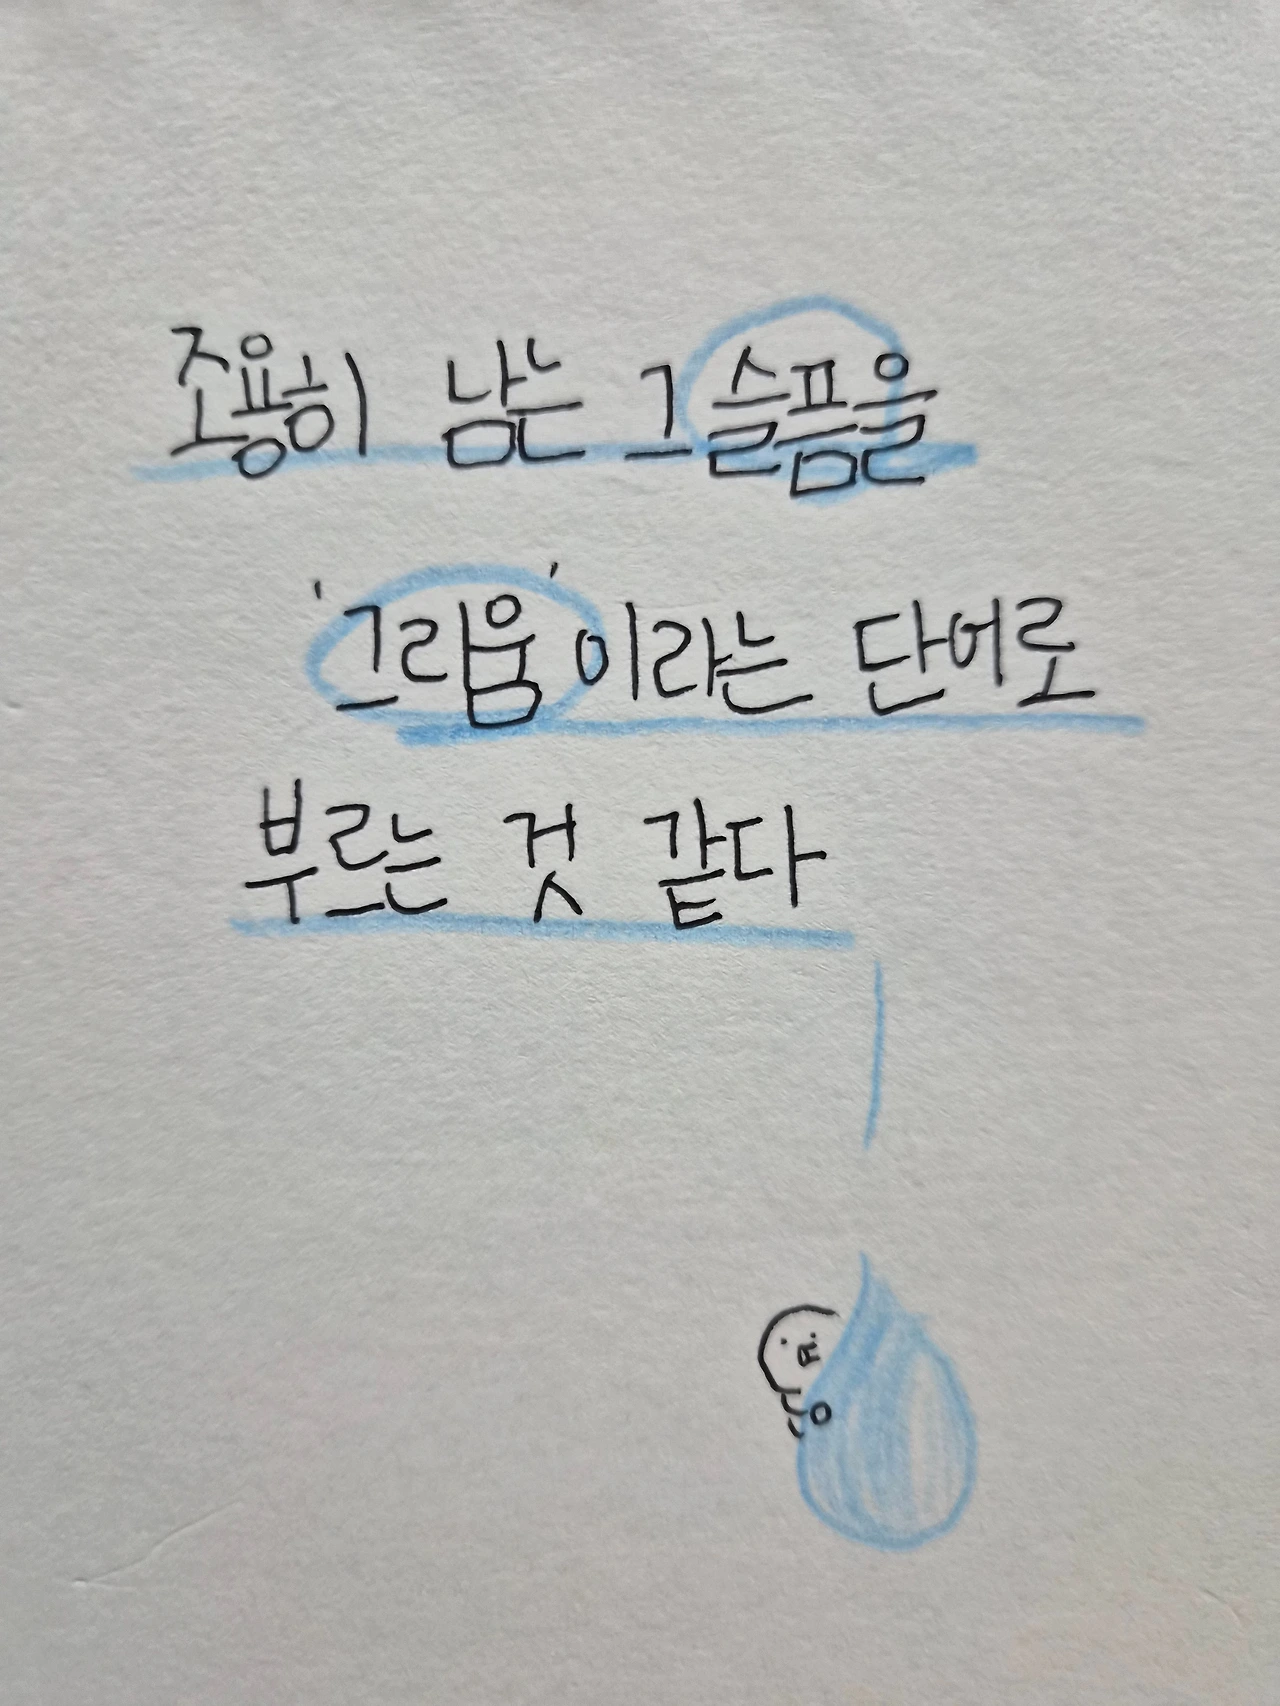 조용히 남는 그 슬픔을
'그리움'이라는 단어로
부르는 것 같다